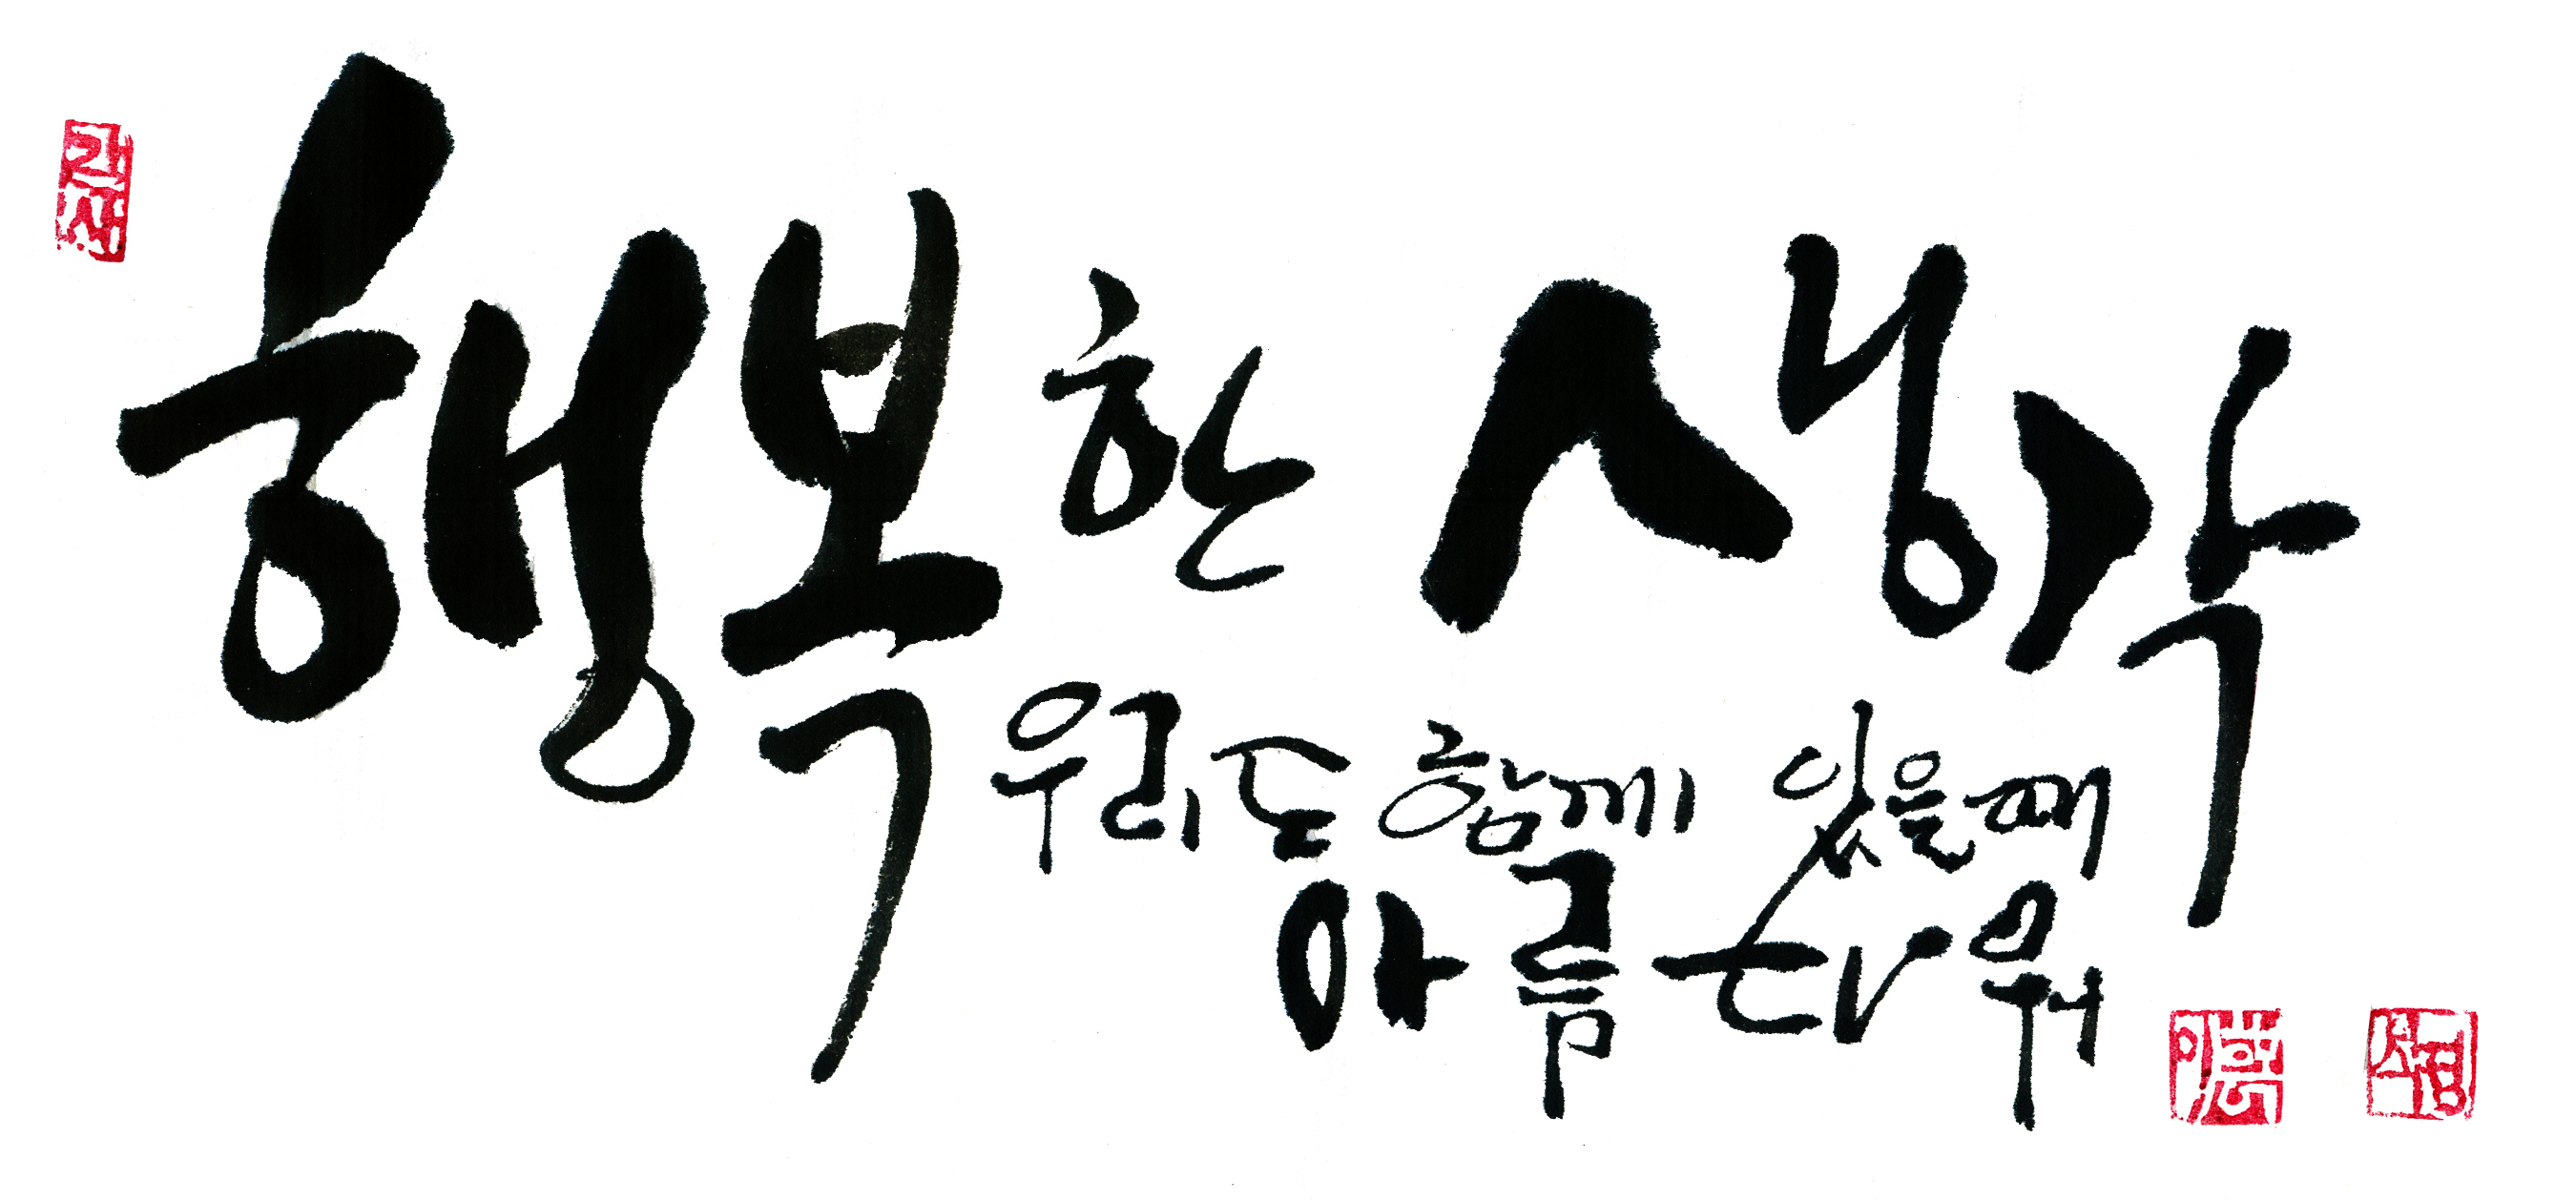 행복한 생각
우리는 함께 있을때
아름다워